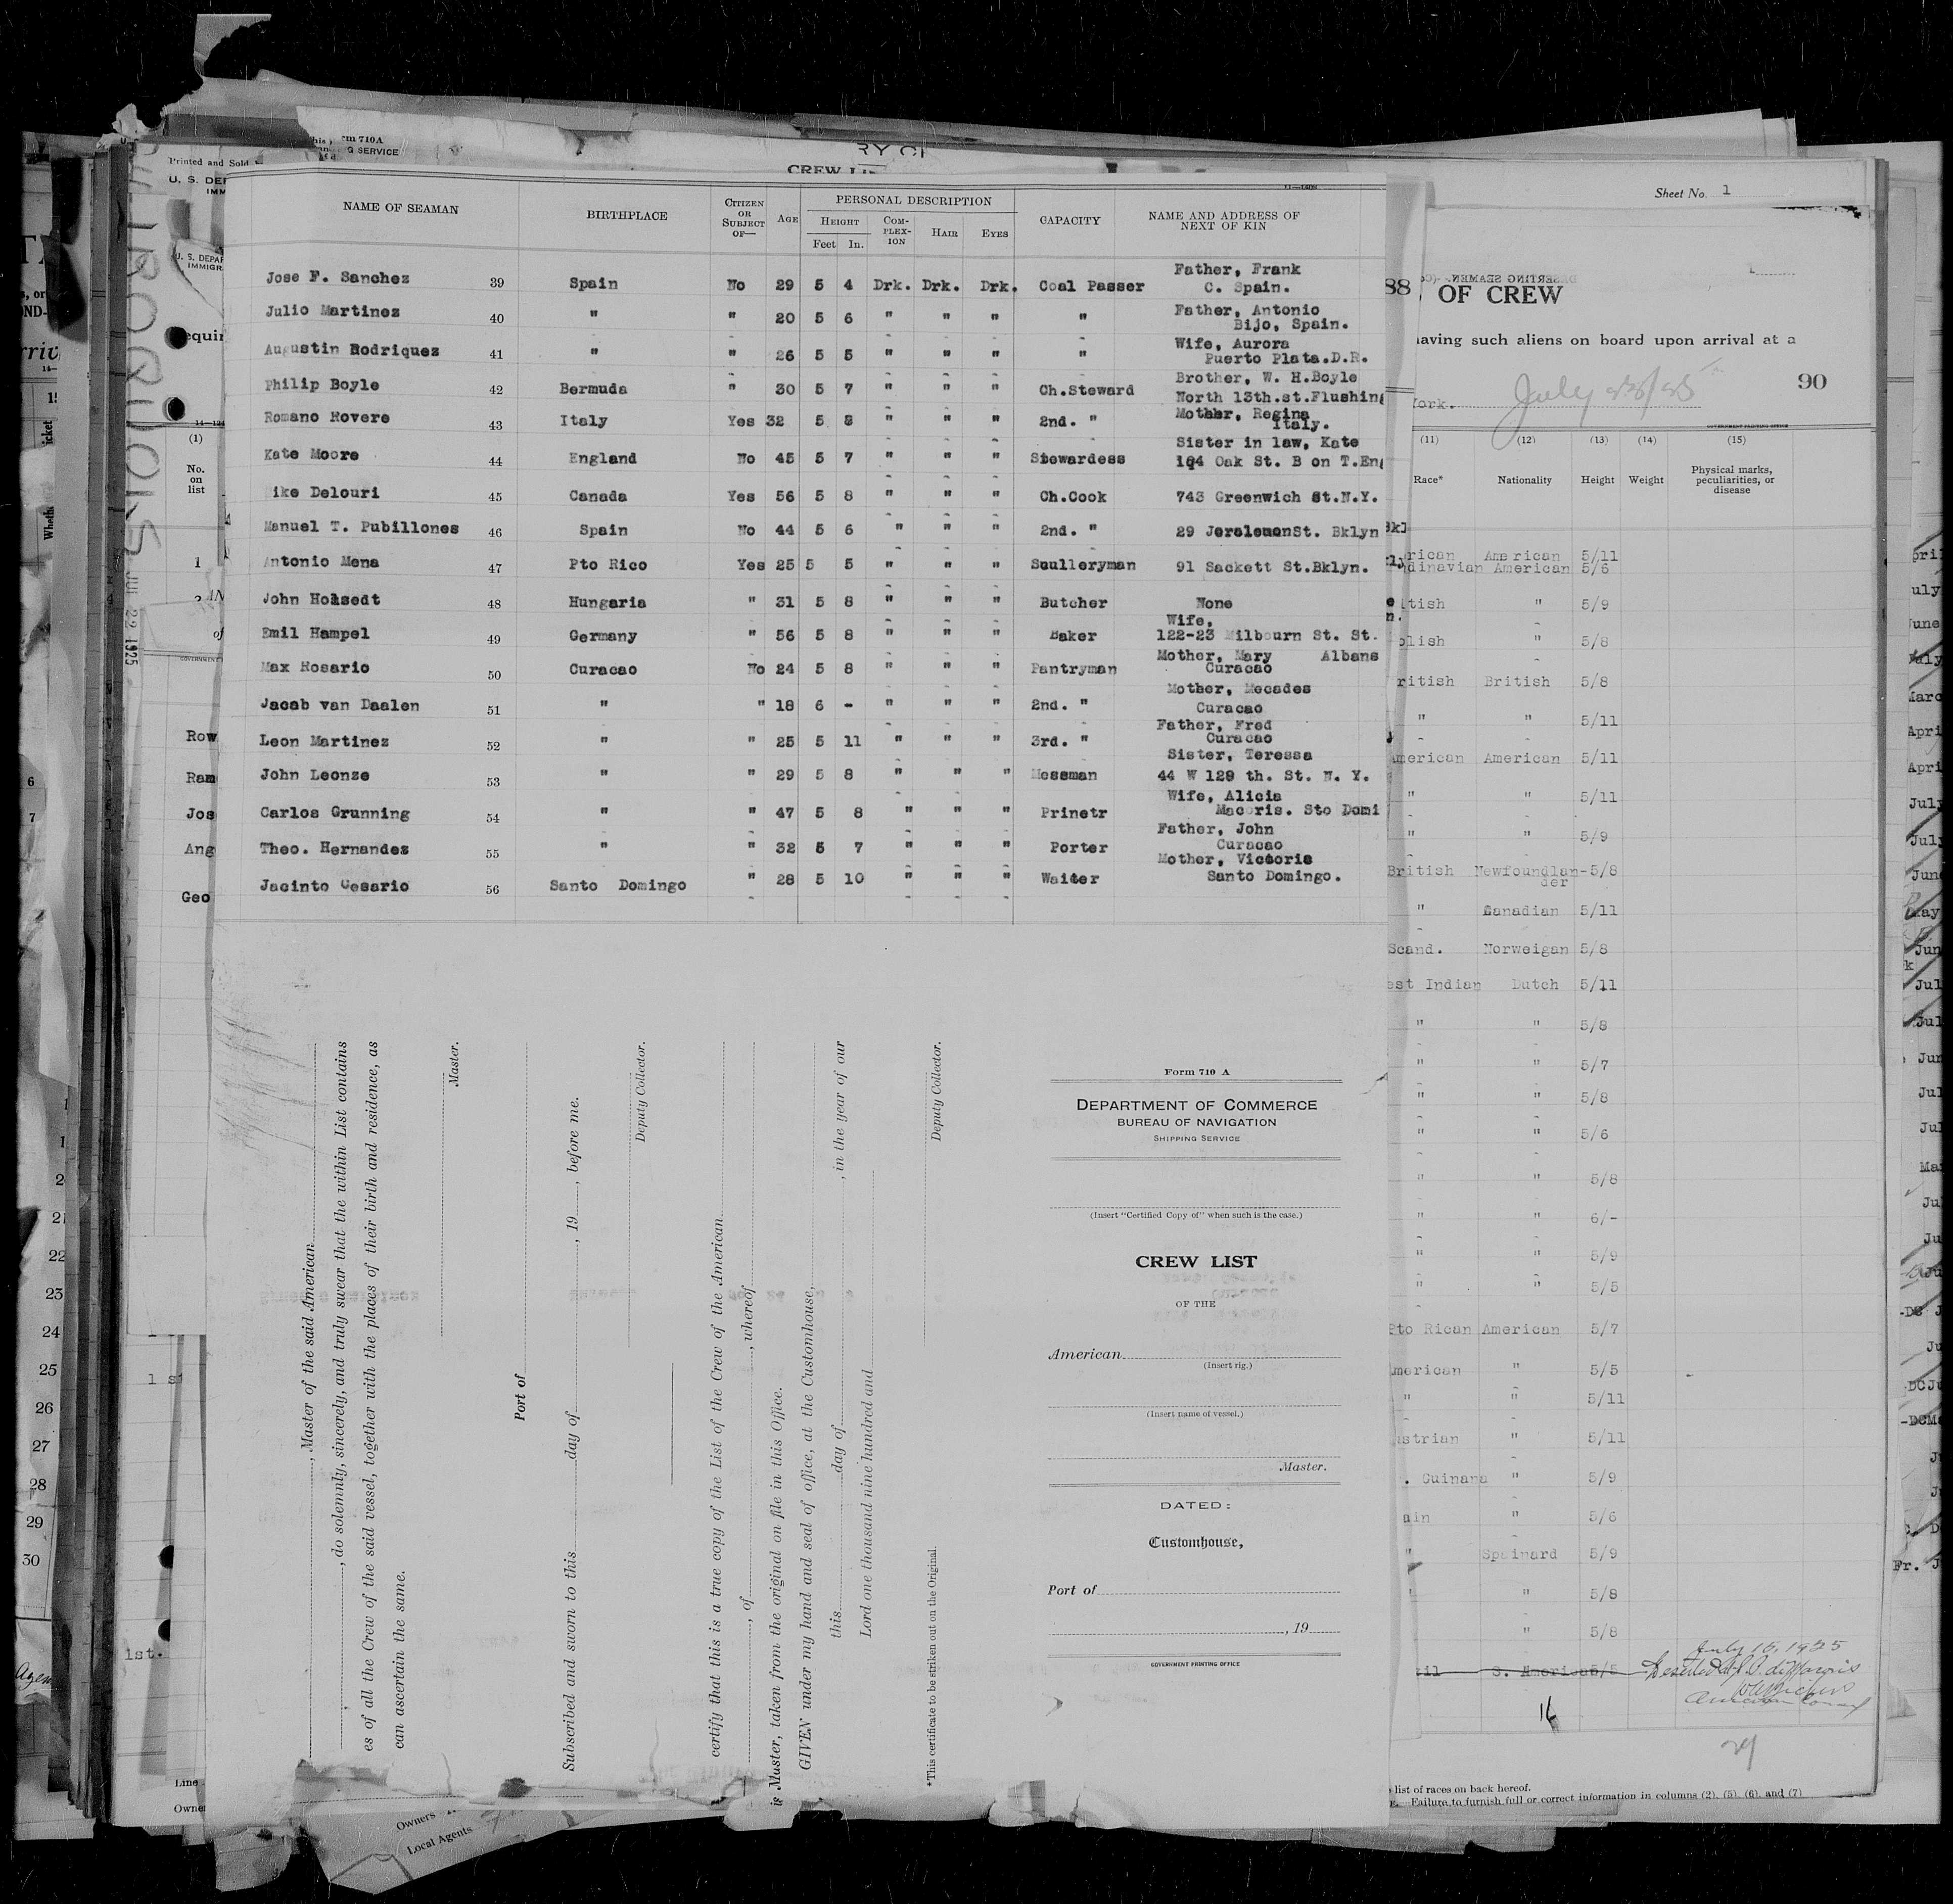 Form 710 A
SERVICE
Printed and Sold
U. S. DEPARTMENT
Sheet No. 1
NAME OF SEAMAN BIRTHPLACE CITIZEN OR SUBJECT OF— AGE PERSONAL DESCRIPTION CAPACITY NAME AND ADDRESS OF NEXT OF KIN
HEIGHT COMPLEXION HAIR EYES
Feet In.
Jose F. Sanchez 39 Spain No 29 5 4 Drk. Drk. Drk. Coal Passer Father, Frank
C. Spain.
Julio Martinez 40 " " 20 5 6 " " " " Father, Antonio
Bijo, Spain.
Augustin Rodriquez 41 " " 26 5 5 " " " " Wife, Aurora
Puerto Plata.D.R.
Philip Boyle 42 Bermuda " 30 5 7 " " " Ch.Steward Brother, W. H.Boyle
North 13th.st.Flushing
Romano Rovere 43 Italy Yes 32 5 8 " " " 2nd. " Mother, Regina
Italy.
Kate Moore 44 England No 45 5 7 " " " Stewardess Sister in law, Kate
104 Oak St. B on T.Eng
ike Delouri 45 Canada Yes 56 5 8 " " " Ch.Cook 743 Greenwich St.N.Y.
Manuel T. Pubillones 46 Spain No 44 5 6 " " " 2nd. " 29 JerolemonSt. Bklyn
Antonio Mena 47 Pto Rico Yes 25 5 5 " " " Sculleryman 91 Sackett St.Bklyn.
John Holsedt 48 Hungaria " 31 5 8 " " " Butcher None
Emil Hampel 49 Germany " 56 5 8 " " " Baker Wife,
122-23 Milbourn St. St.
Albans
Max Rosario 50 Curacao No 24 5 8 " " " Pantryman Mother, Mary
Curacao
Jacob van Daalen 51 " " 18 6 - " " " 2nd. " Mother, Mecades
Curacao
Leon Martinez 52 " " 25 5 11 " " " 3rd. " Father, Fred
Curacao
John Leonze 53 " " 29 5 8 " " " Messman Sister, Teressa
44 W 129 th. St. N. Y.
Carlos Grunning 54 " " 47 5 8 " " " Prinetr Wife, Alicia
Macoris. Sto Domi
Theo. Hernandez 55 " " 32 5 7 " " " Porter Father, John
Curacao
Jacinto Cesario 56 Santo Domingo " 28 5 10 " " " Waiter Mother, Victoria
Santo Domingo.
, Master of the said American
, do solemnly, sincerely, and truly swear that the within List contains
es of all the Crew of the said vessel, together with the places of their birth and residence, as
can ascertain the same.
Master.
Port of
Subscribed and sworn to this day of , 19 , before me.
Deputy Collector.
certify that this is a true copy of the List of the Crew of the American
, of , whereof
is Master, taken from the original on file in this Office.
GIVEN under my hand and seal of office, at the Customhouse,
this day of , in the year of our
Lord one thousand nine hundred and
Deputy Collector.
*This certificate to be striken out on the Original.
Form 710 A
DEPARTMENT OF COMMERCE
BUREAU OF NAVIGATION
SHIPPING SERVICE
(Insert "Certified Copy of" when such is the case.)
CREW LIST
OF THE
American
(Insert rig.)
(Insert name of vessel.)
Master.
DATED:
Customhouse,
Port of
, 19
GOVERNMENT PRINTING OFFICE
88
OF CREW
having such aliens on board upon arrival at a
90
(11) (12) (13) (14) (15)
Race* Nationality Height Weight Physical marks, peculiarities, or disease
rican American 5/11
dinavian American 5/6
tish " 5/9
olish " 5/8
ritish British 5/8
" " 5/11
merican American 5/11
" " 5/11
" " 5/9
British Newfoundlan- 5/8
der
" Canadian 5/11
Scand. Norweigan 5/8
est Indian Dutch 5/11
" " 5/8
" " 5/7
" " 5/8
" " 5/6
" " 5/8
" " 6/-
" " 5/9
" " 5/5
Pto Rican American 5/7
merican " 5/5
" " 5/11
strian " 5/11
. Guinana " 5/9
ain " 5/6
" Spainard 5/9
" " 5/8
" 5/8
zil S. America 5/5
July 15, 1925
16
list of races on back hereof.
Failure to furnish full or correct information in columns (2), (5), (6), and (7)
(1)
No. on list
1
JUL 22 1925
Row
Ram
Jos
Ang
Geo
22
23
24
25
26
27
28
29
30
1st.
Line
Owners
Local Agents